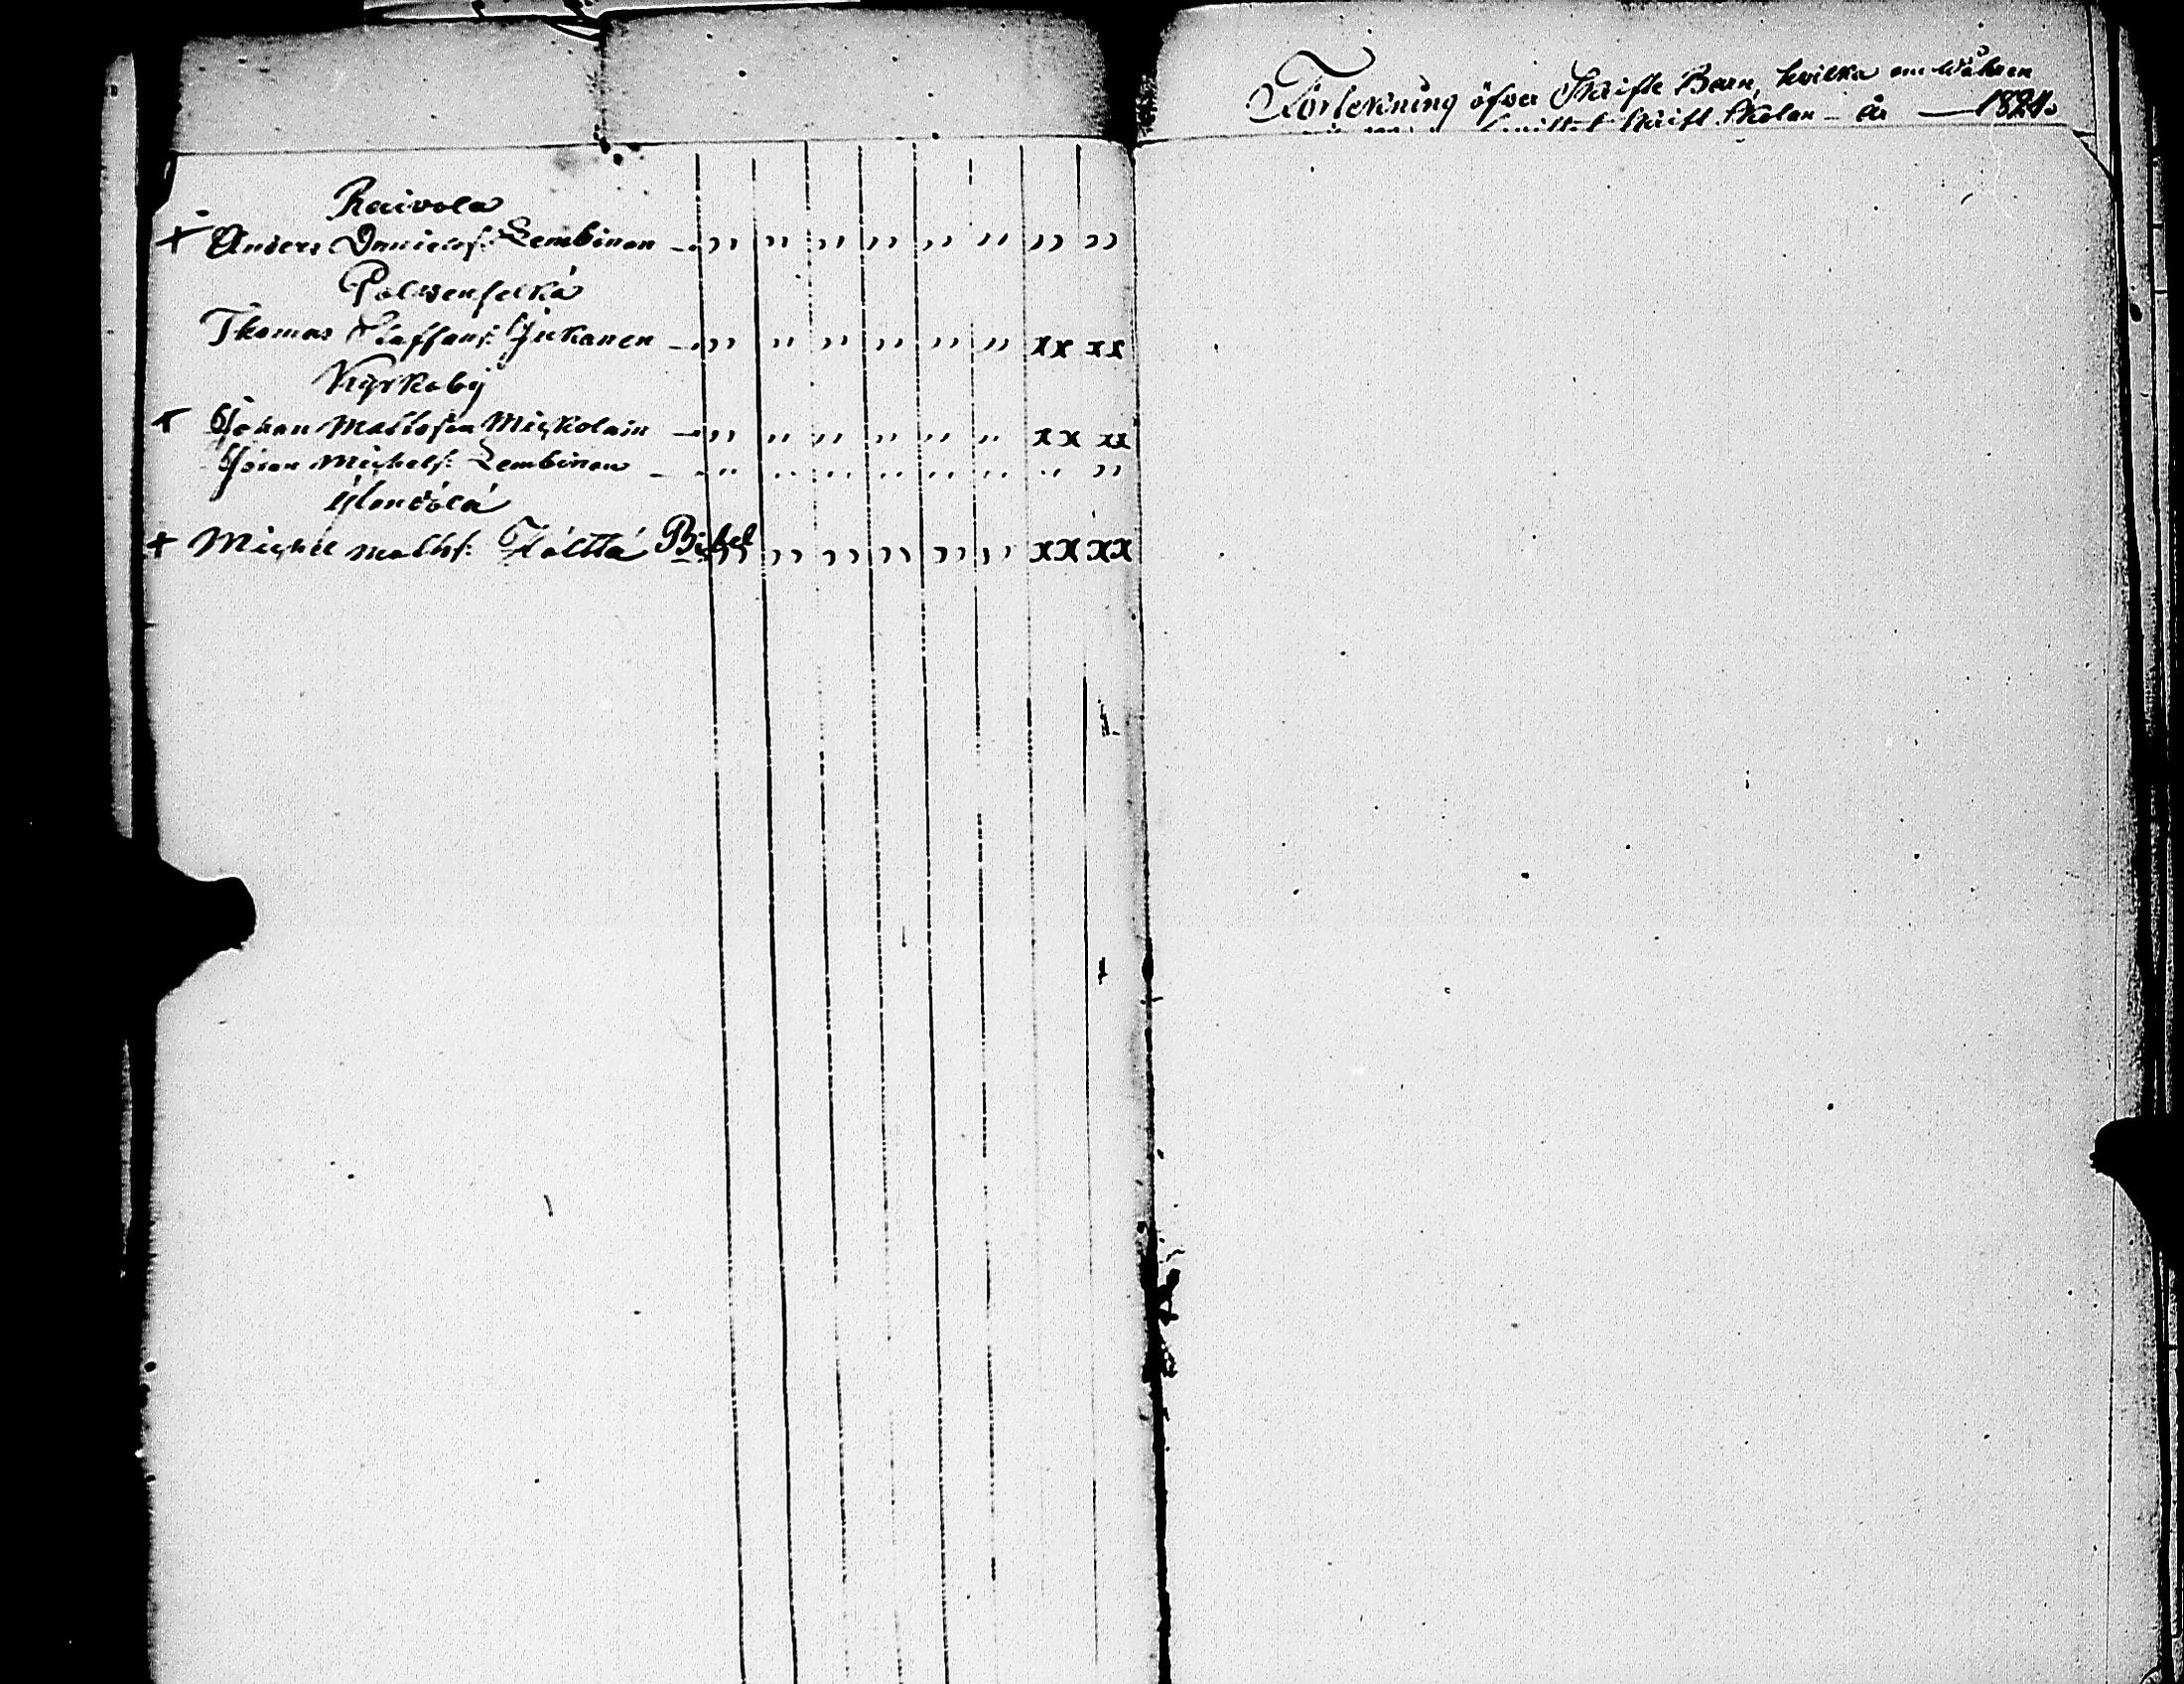 Raivola
+ Anders Danielss: Lembinen — " " " " " " " "
Polvenselkä
Thomas Staffans: Jukanen — " " " " " " xx xx
Kyrkoby
+ Johan Mattsson Mickolain — " " " " " " xx xx
Göran Michelss: Lembinen — " " " " " " " "
+ Michel Matts: Höltta Bibel " " " " " " xx xx
Förtekning öfver Skrifte Barn, hvilka om Wåhren
Skrift Skolan – år — 1824.